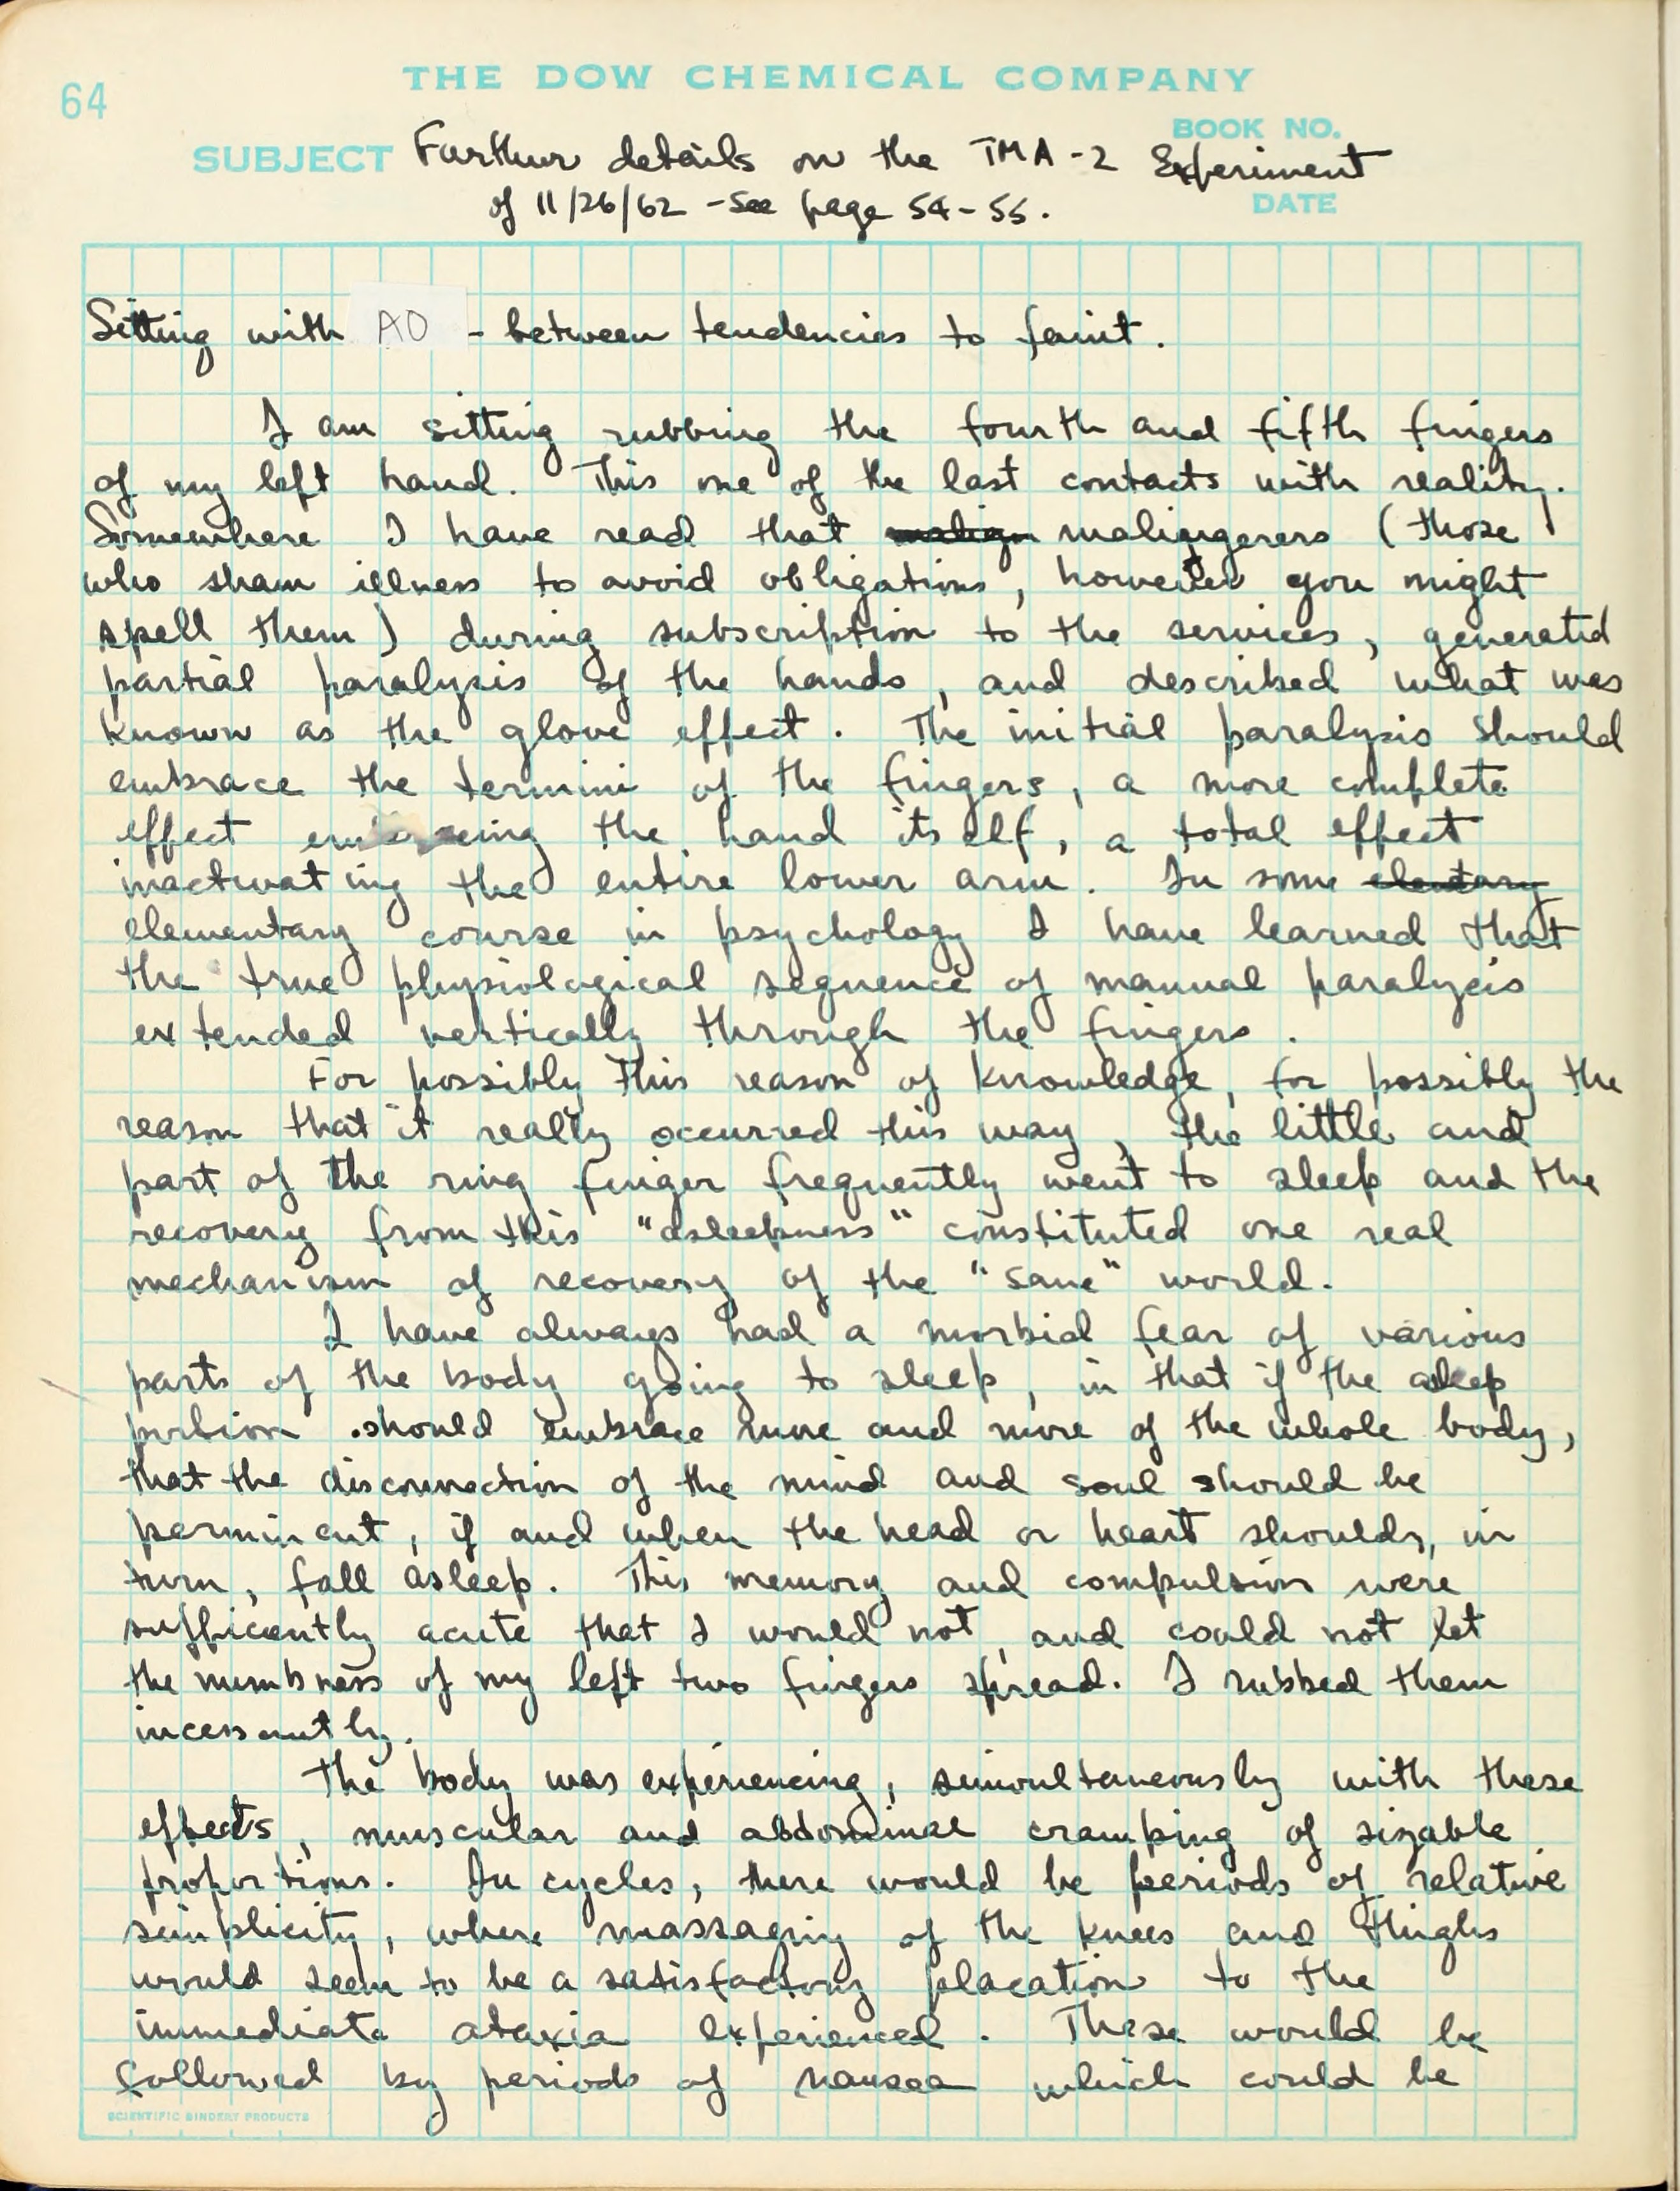 64
THE DOW CHEMICAL COMPANY
BOOK NO.
SUBJECT Further details on the TMA-2 Experiment
of 11/26/62 - see page 54-55.
DATE
Sitting with AO - between tendencies to faint.
I am sitting rubbing the fourth and fifth fingers
of my left hand. This one of the last contacts with reality.
Somewhere I have read that malingerers (those
who sham illness to avoid obligations, however you might
spell them) during subscription to the services, generated
partial paralysis of the hands, and described what was
known as the glove effect. The initial paralysis should
embrace the termini of the fingers, a more complete
effect embraceing the hand itself, a total effect
inactivating the entire lower arm. In some
elementary course in psychology I have learned that
the true physiological sequence of manual paralysis
extended vertically through the fingers.
For possibly this reason of knowledge, for possibly the
reason that it really occurred this way, the little and
part of the ring finger frequently went to sleep and the
recovery from this "asleepness" constituted one real
mechanism of recovery of the "sane" world.
I have always had a morbid fear of various
parts of the body going to sleep, in that if the asleep
portion should embrace more and more of the whole body,
that the disconnection of the mind and soul should be
perminent, if and when the head or heart should, in
turn, fall asleep. This memory and compulsion were
sufficently acute that I would not, and could not let
the numbness of my left two fingers spread. I rubbed them
incessantly.
The body was experiencing, simoultaneously with these
effects, muscular and abdominal cramping of sizable
proportions. In cycles, there would be periods of relative
simplicity, where massaging of the knees and thighs
would seem to be a satisfactory placation to the
immediate ataxia experienced. These would be
followed by periods of nausea which could be
SCIENTIFIC BINDERY PRODUCTS